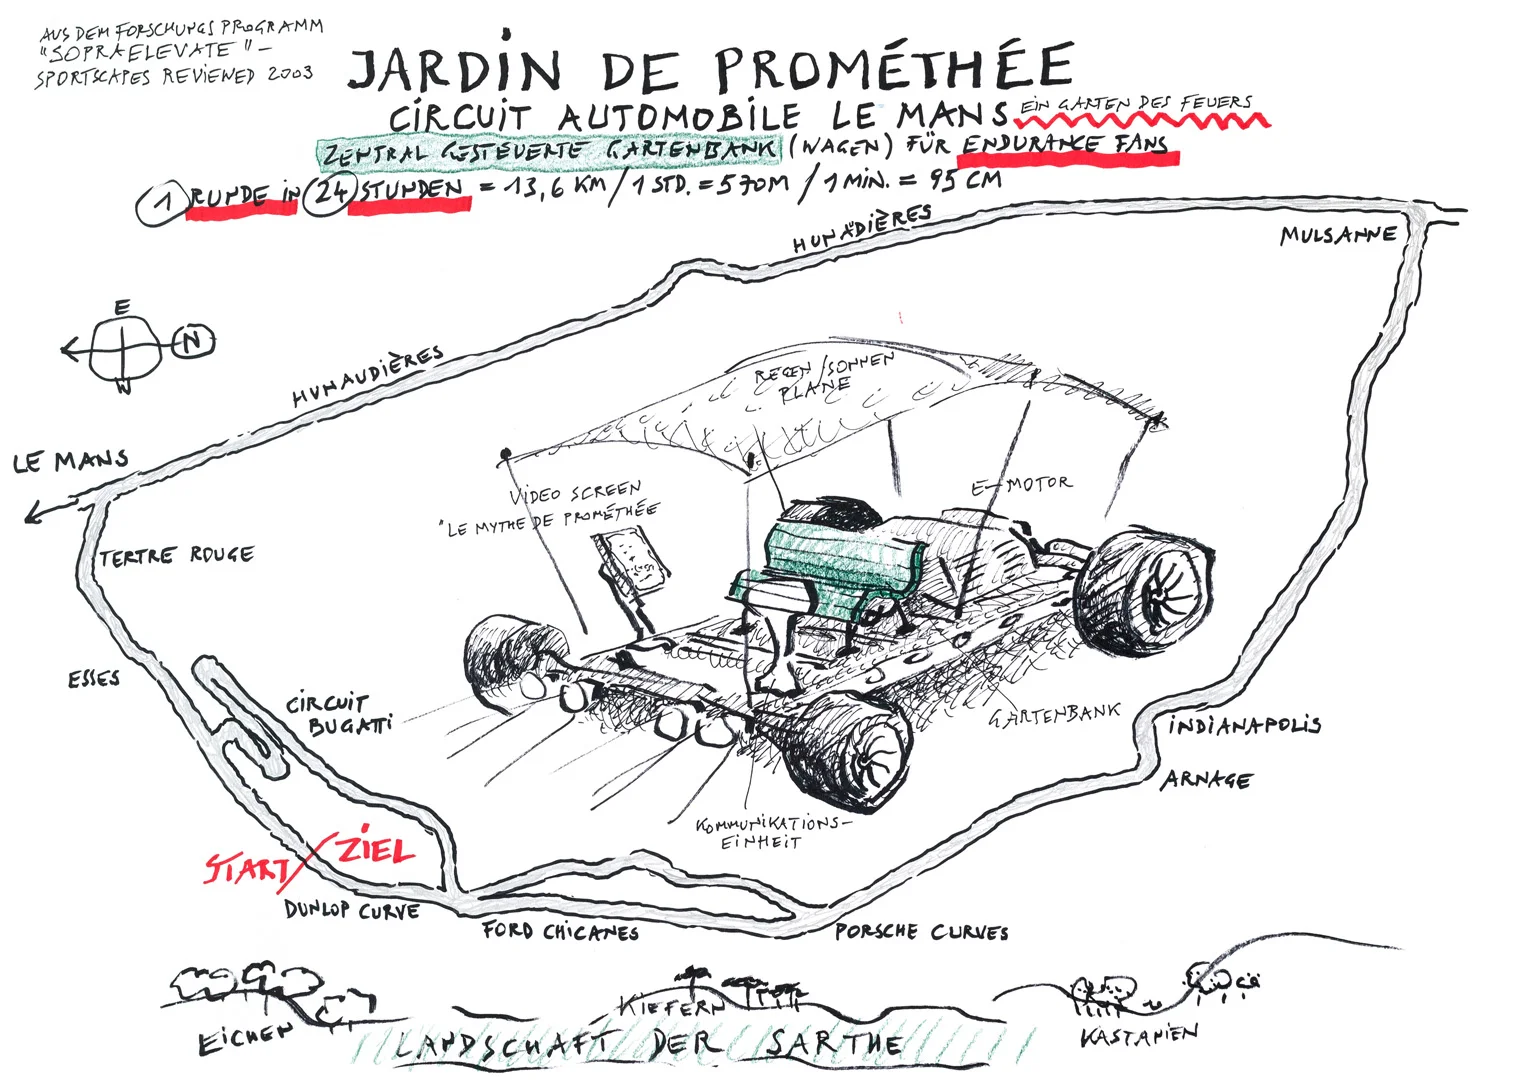 AUS DEM FORSCHUNGSPROGRAMM
"SOPRAELEVATE" –
SPORTSCAPES REVIEWED 2003
JARDIN DE PROMÉTHÉE
CIRCUIT AUTOMOBILE LE MANS EIN GARTEN DES FEUERS
ZENTRAL GESTEUERTE GARTENBANK (WAGEN) FÜR ENDURANCE FANS
1 RUNDE IN 24 STUNDEN = 13,6 KM / 1 STD. = 570M / 1 MIN. = 95 CM
HUNADIÈRES
MULSANNE
E
N
W
HUNAUDIÈRES
REGEN/SONNEN
PLANE
LE MANS
VIDEO SCREEN
"LE MYTHE DE PROMÉTHÉE
E-MOTOR
TERTRE ROUGE
ESSES
CIRCUIT
BUGATTI
GARTENBANK
INDIANAPOLIS
ARNAGE
KOMMUNIKATIONS-
EINHEIT
START/ZIEL
DUNLOP CURVE
FORD CHICANES
PORSCHE CURVES
EICHEN
KIEFERN
KASTANIEN
LANDSCHAFT DER SARTHE